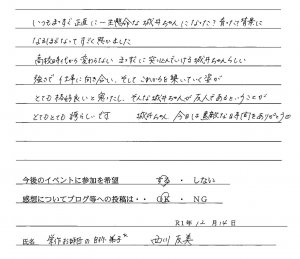 いつもまっすぐ正直に一生懸命な城井ちゃんになった?育った背景に
なるほどなってすごく思いました
高校時代から変わらない まっすぐに突き進んでいける城井ちゃんらしい
強さで仕事に向き合い、そしてこれからを築いていく姿が
とても格好良いと思ったし、そんな城井ちゃんが友人であるということが
とてもとても誇らしいです 城井ちゃん、今日は素敵なお手紙をありがとう
今後のイベントに参加を希望 する ・ しない
感想についてブログ等への投稿は・・ OK ・ NG
R1年 12月 14日
氏名 西川 友美